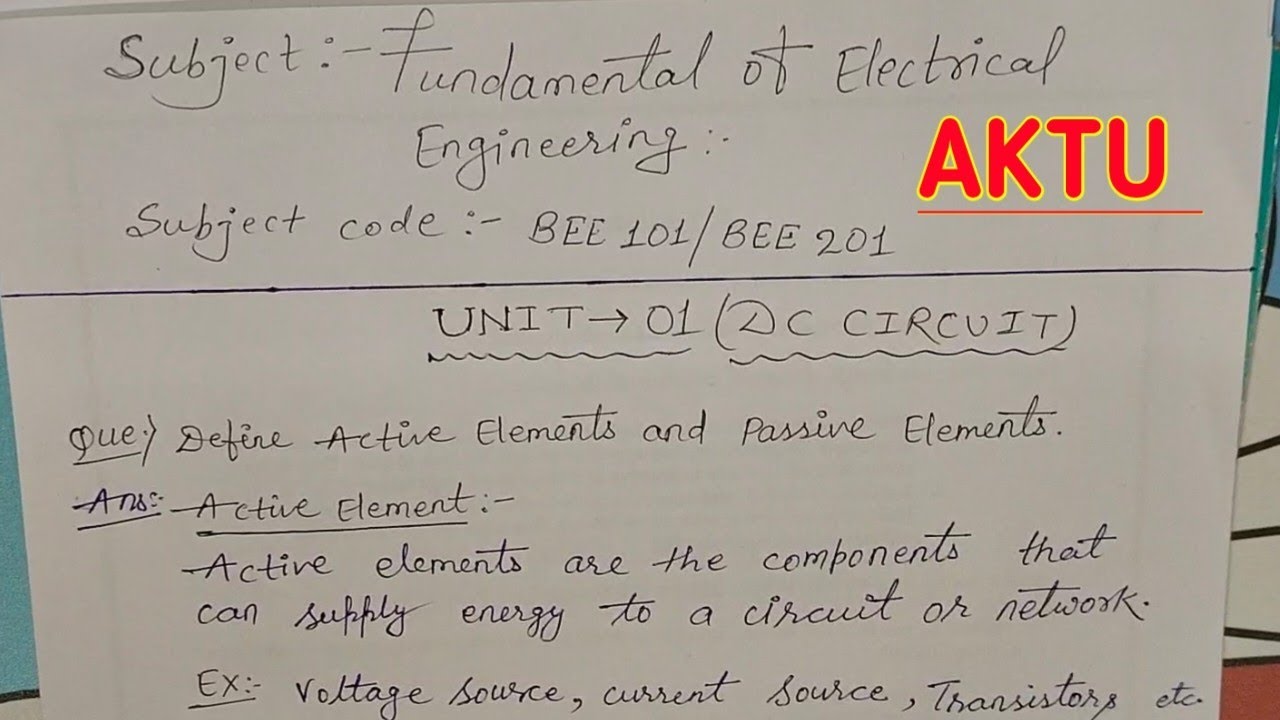 Subject:- Fundamental of Electrical
Engineering:-
AKTU
Subject code:- BEE 101/BEE 201
UNIT→ 01 (DC CIRCUIT)
Que:) Define Active Elements and Passive Elements.
Ans:- Active Element:-
Active elements are the components that
can supply energy to a circuit or network.
Ex:- Voltage source, current source, Transistors etc.